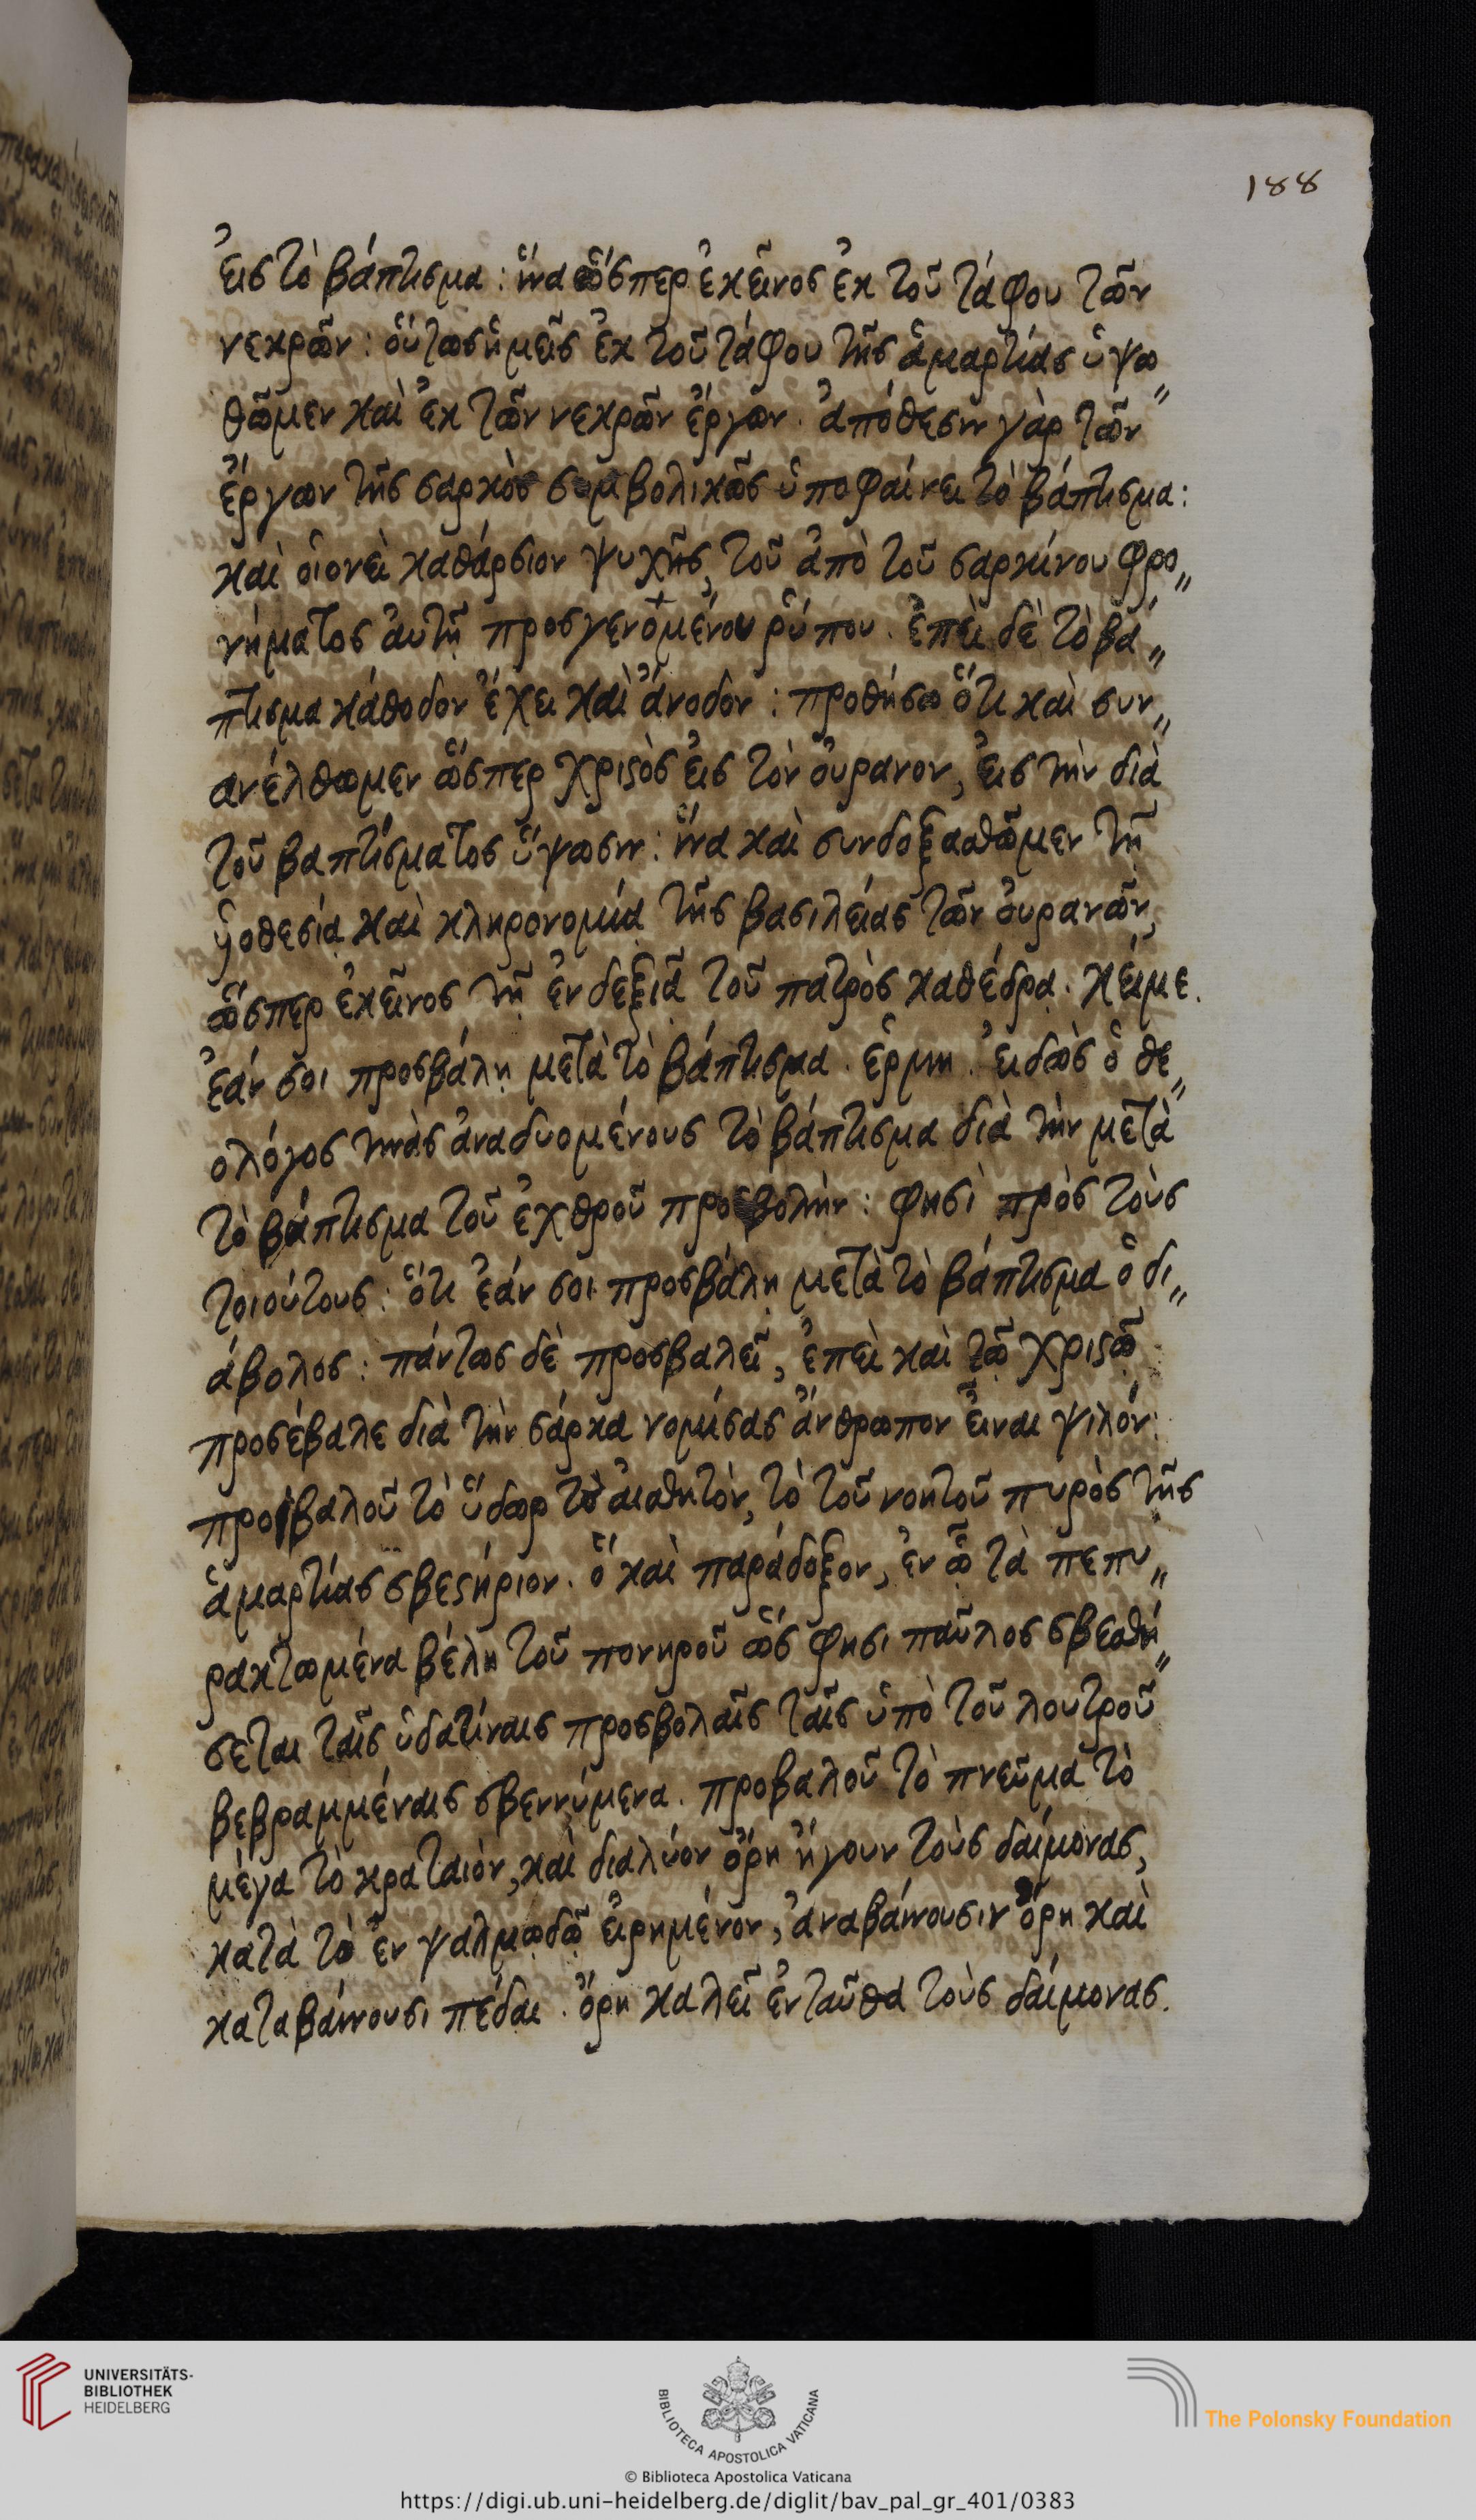 188
εἰς τὸ βάπτισμα: ἵνα ὥσπερ ἐκεῖνος ἐκ τοῦ τάφου τῶν
νεκρῶν: οὕτως ἡμεῖς ἐκ τοῦ τάφου τῆς ἁμαρτίας ὑψω„
θῶμεν καὶ ἐκ τῶν νεκρῶν ἔργων. ἀπόθεσιν γὰρ τῶν
ἔργων τῆς σαρκὸς συμβολικῶς ὑποφαίνει τὸ βάπτισμα:
καὶ οἱονεὶ καθάρσιον ψυχῆς, τοῦ ἀπὸ τοῦ σαρκίνου φρο„
νήματος αὐτῇ προσγενομένου ῥύπου. ἐπεὶ δὲ τὸ βά„
πτισμα κάθοδον ἔχει καὶ ἄνοδον: προθήσω ὅτι καὶ συν„
ανέλθωμεν ὥσπερ χριστὸς εἰς τὸν οὐρανον, εἰς τὴν διὰ
τοῦ βαπτίσματος ὕψωσιν: ἵνα καὶ συνδοξασθῶμεν τῇ
ὑοθεσίᾳ καὶ κληρονομίᾳ τῆς βασιλείας τῶν οὐρανῶν,
ὥσπερ ἐκεῖνος τῇ ἐν δεξιᾷ τοῦ πατρὸς καθέδρᾳ. κείμε.
ἐάν σοι προσβάλῃ μετὰ τὸ βάπτισμα. ἑρμη. εἰδὼς ὁ θε„
ολόγος τινὰς ἀναδυομένους τὸ βάπτισμα διὰ τὴν μετὰ
τὸ βάπτισμα τοῦ ἐχθροῦ προσβολὴν: φησὶ πρὸς τοὺς
τοιούτους: ὅτι ἐάν σοι προσβάλῃ μετὰ τὸ βάπτισμα ὁ δι„
άβολος: πάντως δὲ προσβαλεῖ, ἐπεὶ καὶ τῷ χριστῷ
προσέβαλε διὰ τὴν σάρκα νομίσας ἄνθρωπον εἶναι ψιλόν:
προβαλοῦ τὸ ὕδωρ τὸ αἰσθητὸν, τὸ τοῦ νοητοῦ πυρὸς τῆς
ἁμαρτίας σβεστήριον. ὅ καὶ παράδοξον, ἐν ᾧ τὰ πεπυ„
ρακτωμένα βέλη τοῦ πονηροῦ ὥς φησι παῦλος σβεσθή„
σεται ταῖς ὑδατίναις προσβολαῖς ταῖς ὑπὸ τοῦ λουτροῦ
βεβραμμέναις σβεννύμενα. προβαλοῦ τὸ πνεῦμα τὸ
μέγα τὸ κραταιὸν, καὶ διαλύον ὄρη ἤγουν τοὺς δαίμονας,
κατὰ τὸ ἐν ψαλμῳδῷ εἰρημένον, ἀναβαίνουσιν ὄρη καὶ
καταβαίνουσι πέδαι. ὄρη καλεῖ ἐνταῦθα τοὺς δαίμονας.
UNIVERSITÄTS-
BIBLIOTHEK
HEIDELBERG
BIBLIOTECA APOSTOLICA VATICANA
The Polonsky Foundation
© Biblioteca Apostolica Vaticana
https://digi.ub.uni-heidelberg.de/diglit/bav_pal_gr_401/0383